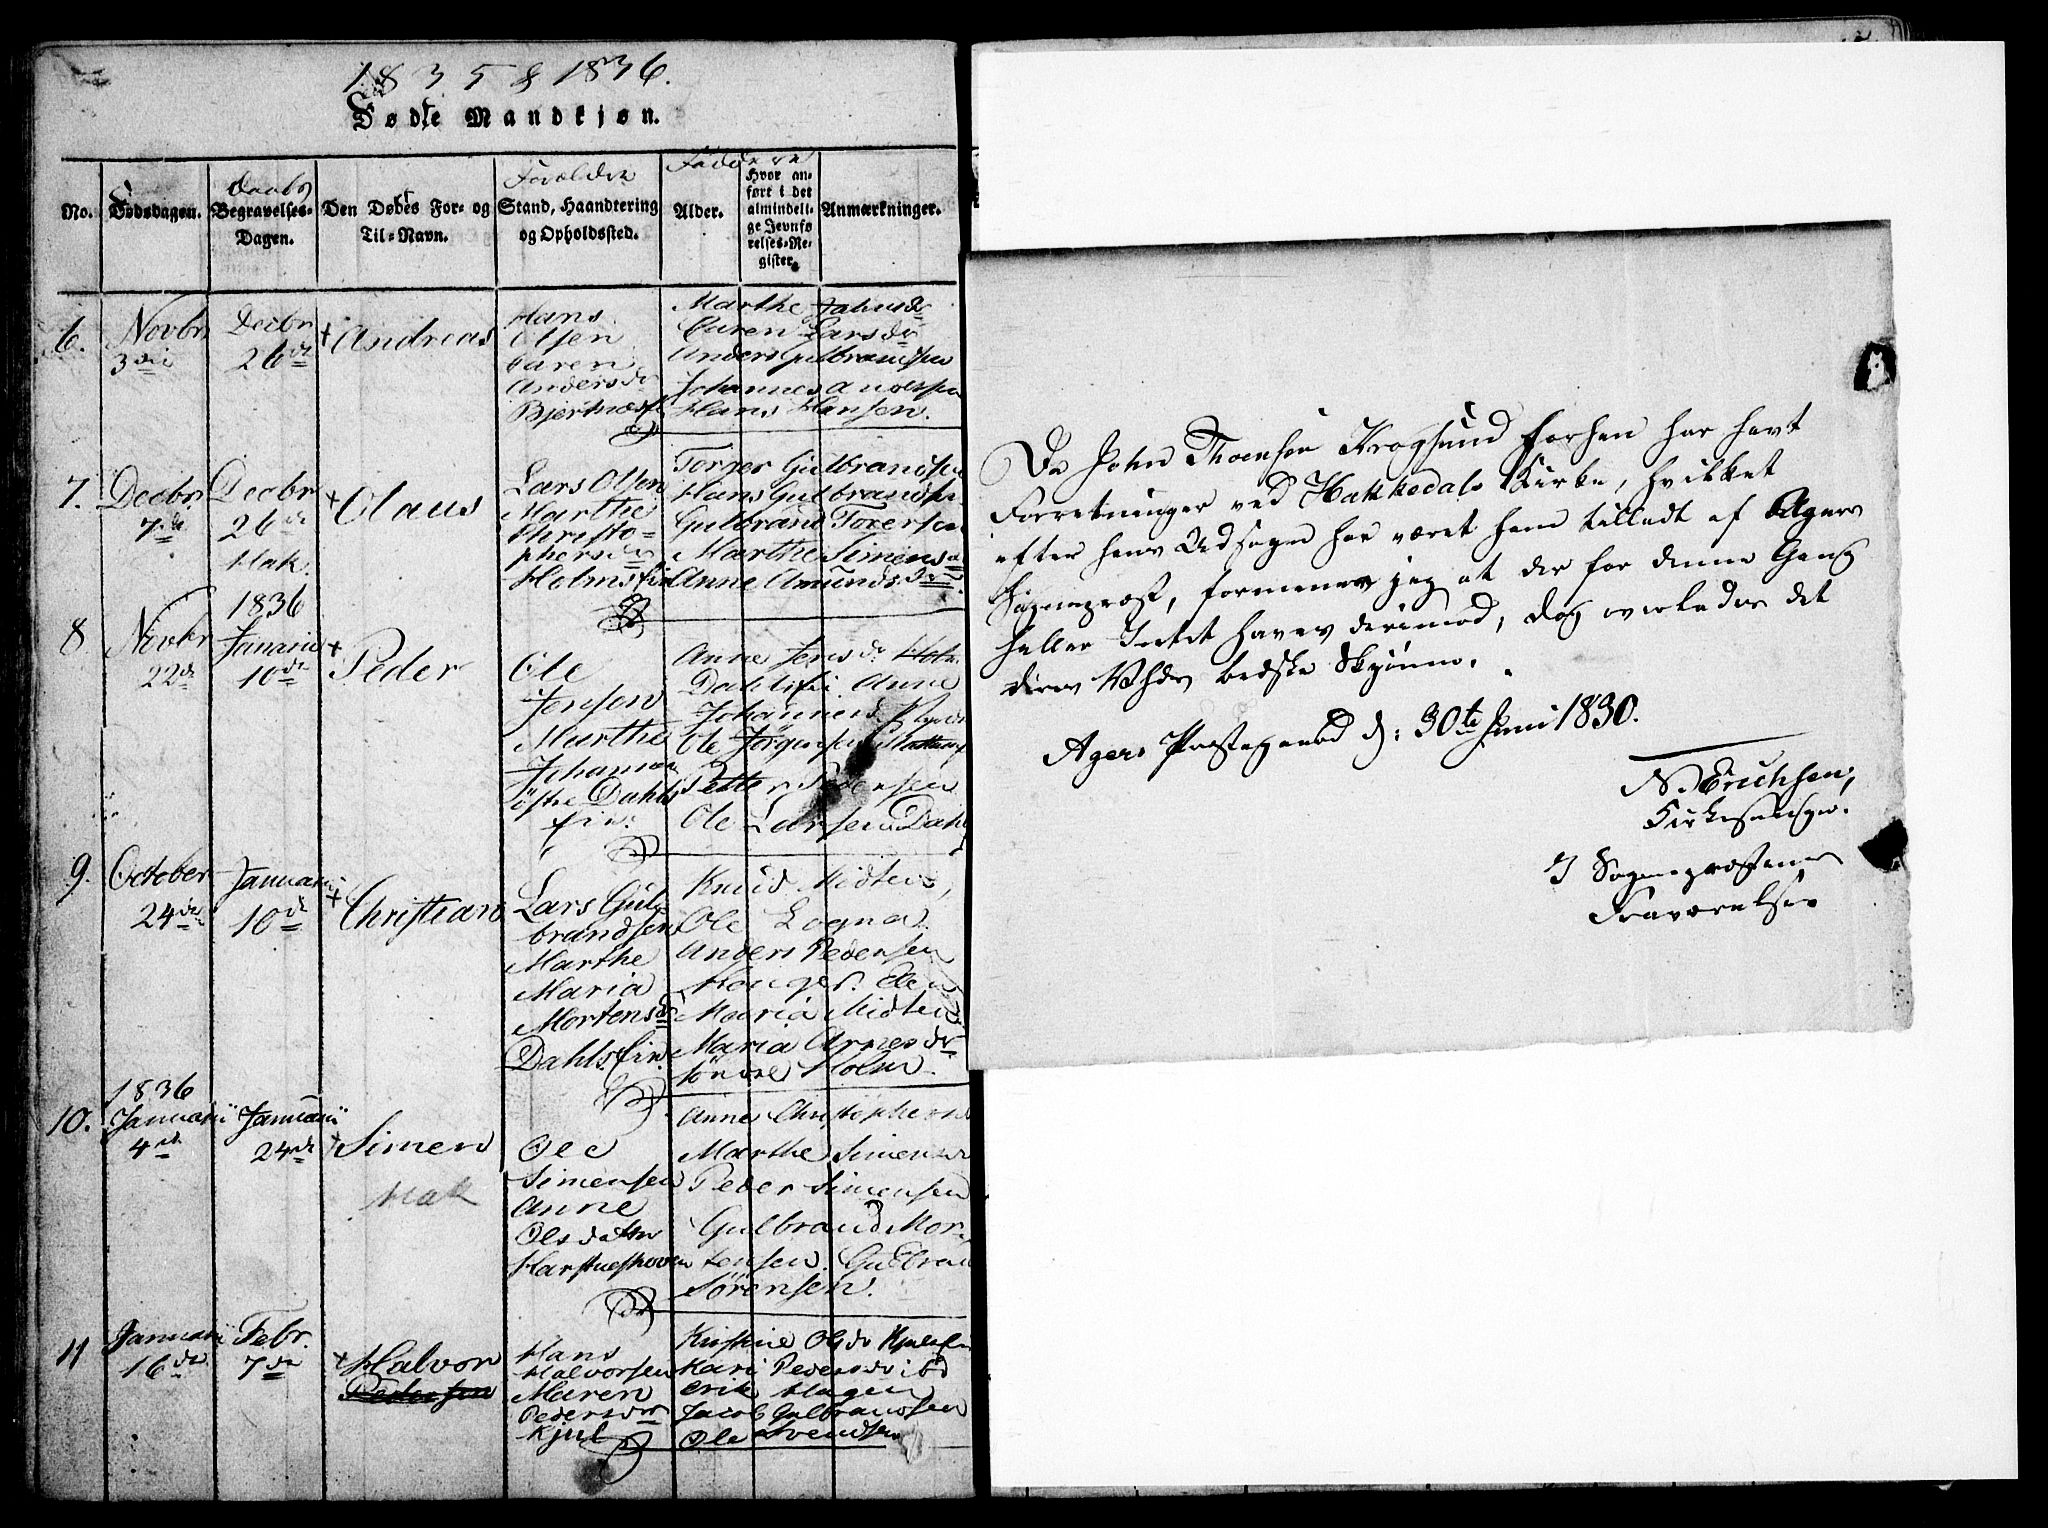 1835 & 1836.
Fødte Mandkjøn.
No.
Dødsdagen.
Daabs
Begravelses-
Dagen.
Den Døbes For- og
Til-Navn.
Forældre
Stand, Haandtering
og Opholdssted.
Faddere
Alder.
Hvor an-
ført i det
almindeli-
ge Jevnfø
relses-Re-
gister.
Anmærkninger.
6.
Novbr
3die
Decbr
26de
+ Andreas
Hans
Olsen
Caren
Andersdr
Marthe Johnsdr
Caren Larsdr
Anders Gulbrandsen
Johannes Andersen
Hans Hansen.
7.
Decbr.
7de
Decbr
26de
Hak.
+ Claus
Lars Olsen
Marthe
Christo-
phersdr
Holmseie
Torger Gulbrandsen
Hans Gulbrandsen
Gulbrand Torersen
Marthe Simensdr
Anne Amundsdr.
8
Novbr
22de
1836
Januarii
10de
+ Peder
Ole
Jensen
Marthe
Johannesdr
østre Dahls
eie.
Anne Jensdr
Dahlseie. Anne
Johannesd.
Ole Jørgensen
Petter Pedersen
Ole Larsen Dahl
9.
October
24de
Januarii
10de
+ Christian
Lars Gul-
brandsen
Marthe
Maria
Mortensdr
Dahlseie.
Knud Midteie,
Ole Logna.
Anders Pedersen
Maria Midteie
Maria Arnesdr
søndre Holm.
10.
1836
Januarii
4de
Januarii
24de
+ Simen
Hak
Ole
Simensen
Anne
Olsdatter
Anne Christophersd
Marthe Simensdr
Peder Simensen
Gulbrand Mor-
tensen. Gulbran
Sørensen.
11
Januarii
16de
Febr.
7de
+ Halvor
Pedersen
Hans
Halvorsen
Maren
Pedersdr
Kjul
Kristine Olsdr
Kari Pedersdr ibd
Erik Hagen
Jacob Gulbrandsen
Ole Svendsen
Da John Thoresen Krogsund forhen har havt
Forretninger ved Hakkedals Kirke, hvilket
efter hans Udsagn har været ham tilladt af Agers
Sognepræst, formener jeg at der for denne Gang
heller Intet haves derimod, dog overlades det
deres bedste Skjønne.
Agers Præstegaard d: 30te Juni 1830.
N. Erichsen,
Kirkesanger.
I Sognepræstens
Fraværelse